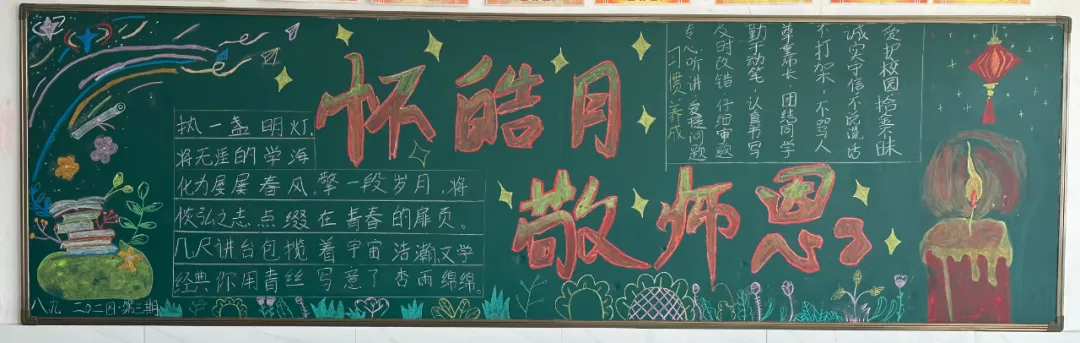 怀皓月
敬师恩
执一盏明灯,
将无涯的学海
化为屡屡春风,擎一段岁月,将
恢弘之志点缀在青春的扉页。
几尺讲台包揽着宇宙浩瀚,文学
经典你用青丝写意了杏雨绵绵。
爱护校园拾金不昧
诚实守信不说谎话
不打架,不骂人
尊重师长,团结同学
勤于动笔,认真书写
及时改错 仔细审题
专心听讲 爱提问题
习惯养成
八九 二〇二四·第三期